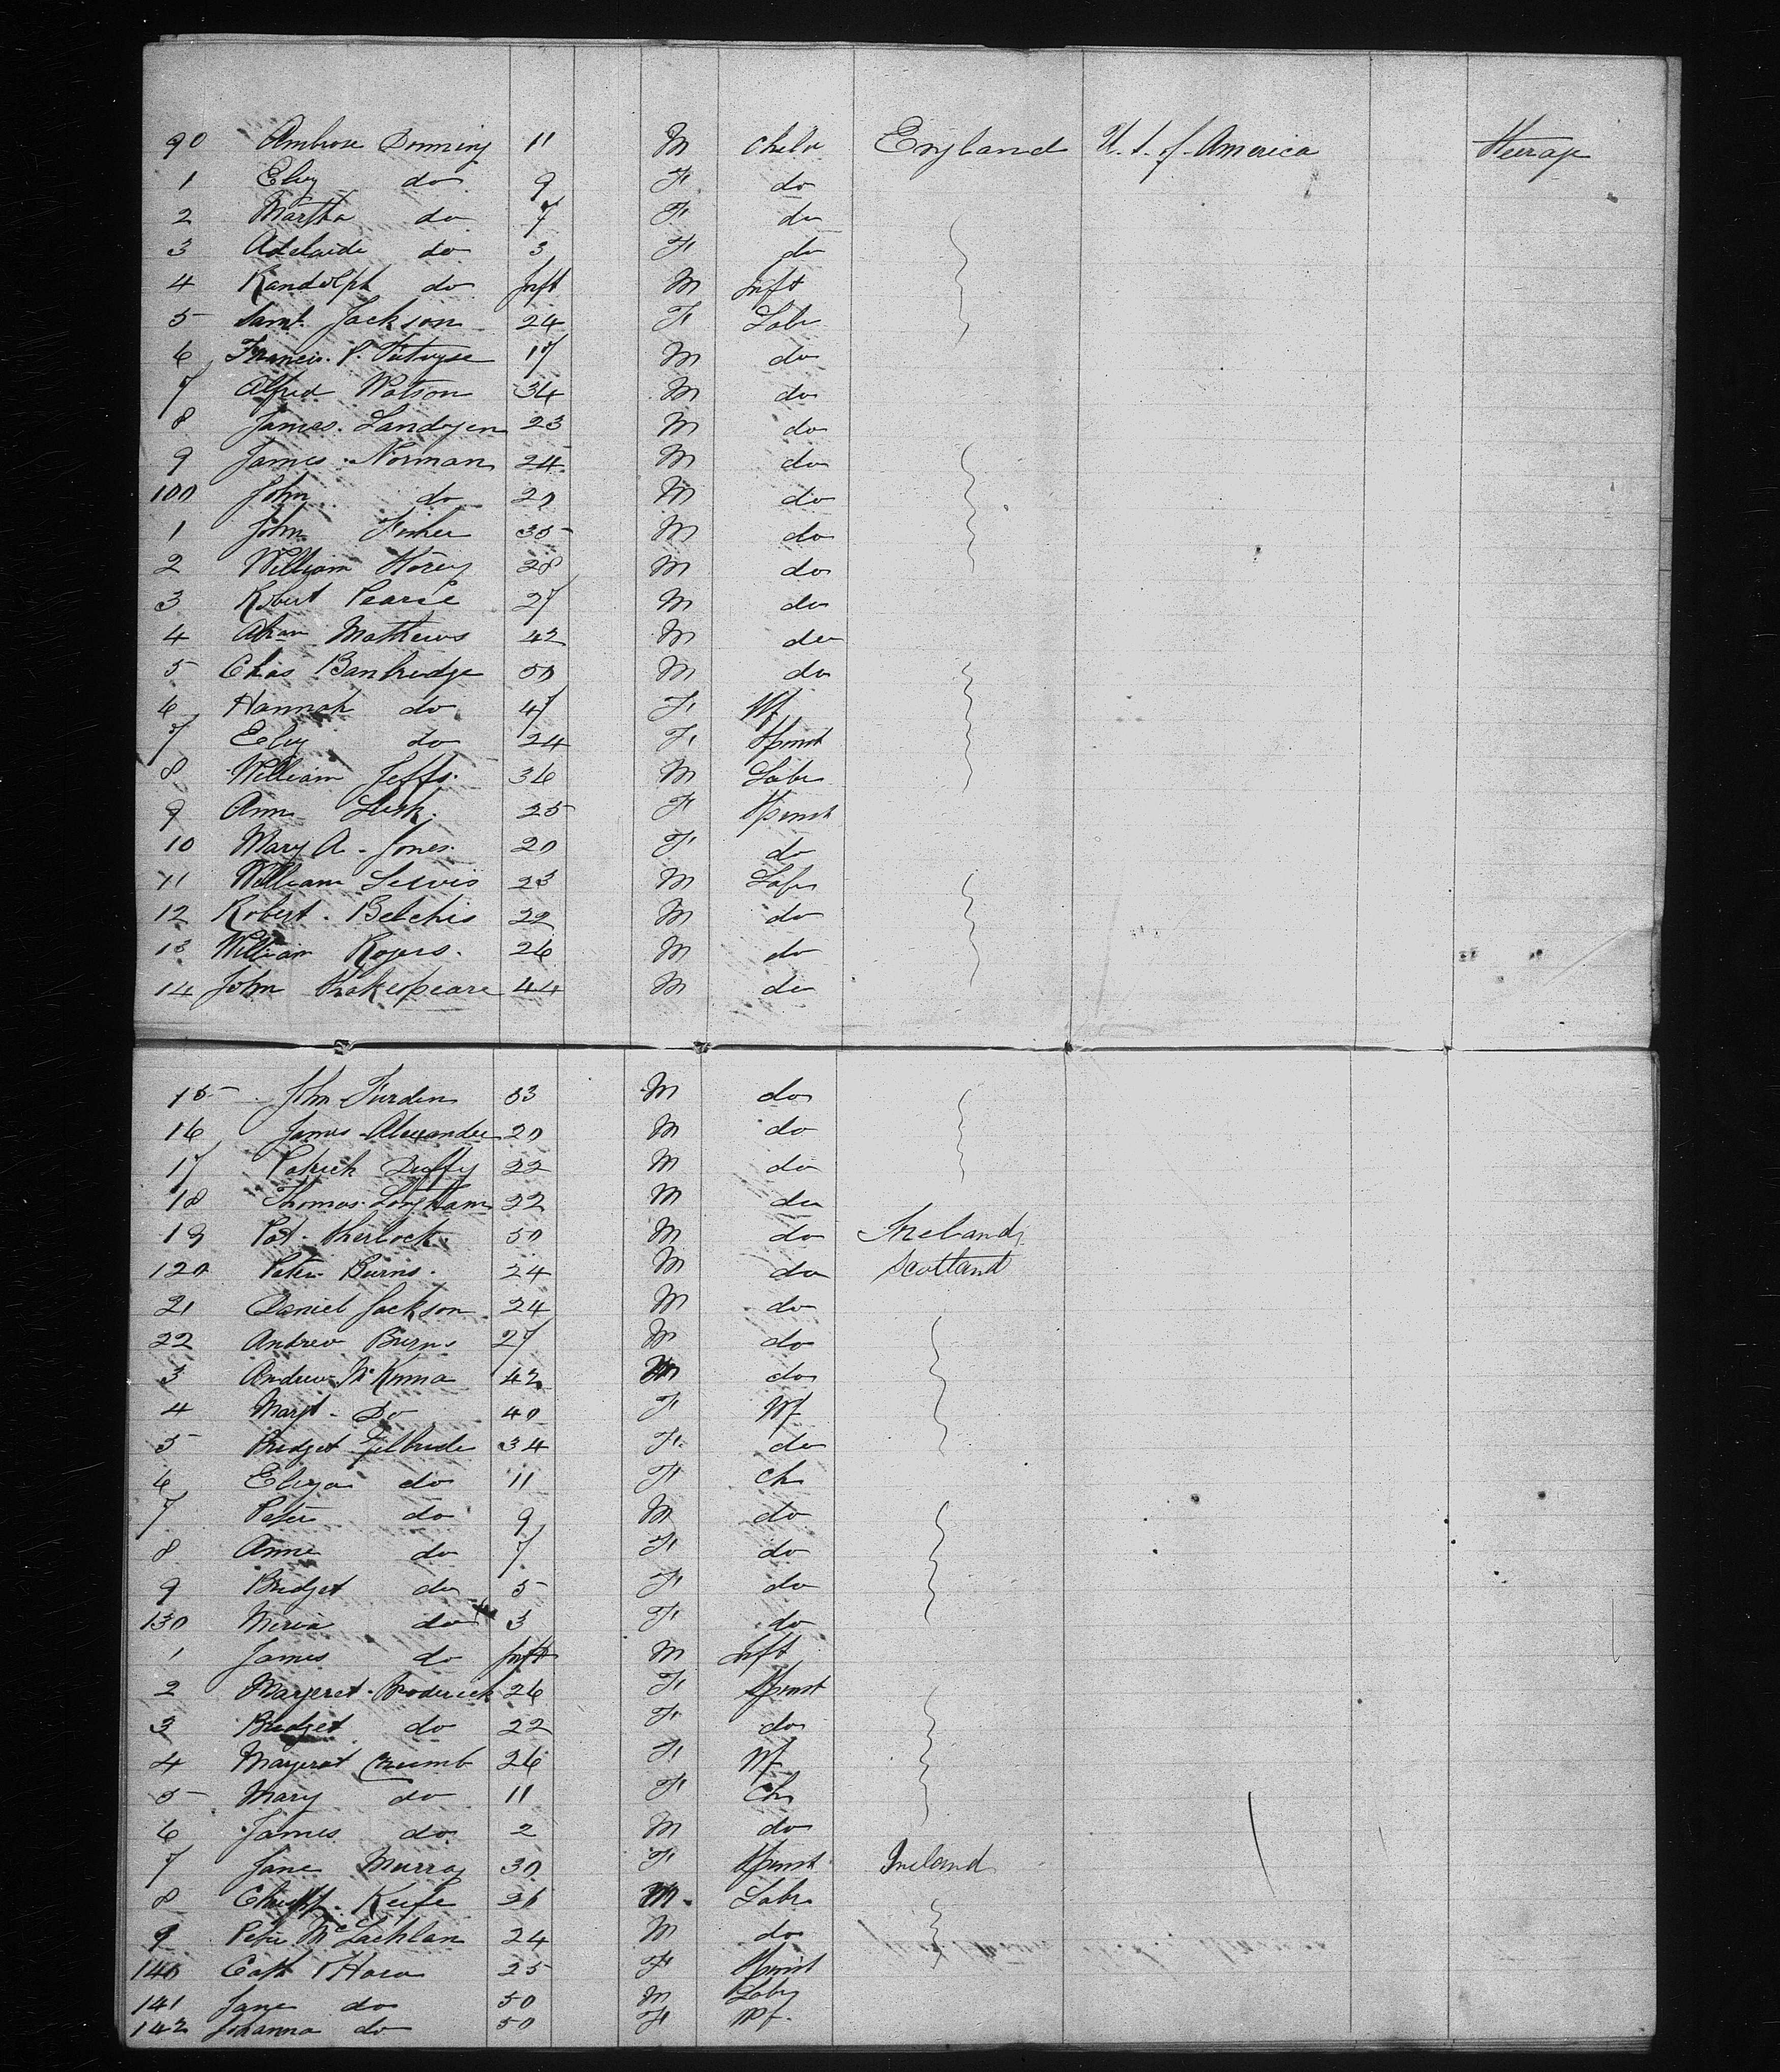 90 Ambrose Donning 11 M Child England U. S. of America Steerage
1 Elizy do 9 F do
2 Martha do 7 F do
3 Adelaide do 3 F do
4 Randolph do Inft M Inft
5 Saml. Jackson 24 F Labr
6 Francis. P. 17 M do
7 Alfred Watson 34 M do
8 James. 23 M do
9 James. Norman 24 M do
100 John do 20 M do
1 John Fisher 35 M do
2 William 28 M do
3 Robert Pearce 27 M do
4 Abam Mathews 42 M do
5 Chas Banbridge 50 M do
6 Hannah do 47 F Wf
7 Elizy do 24 F Spinst
8 William Jeffs. 36 M Labr
9 Ann Lusk. 25 F Spinst
10 Mary A. Jones. 20 F do
11 William Lewis 23 M Labr
12 Robert. Belchis 22 M do
13 William Rogers. 26 M do
14 John Shakespeare 44 M do
15 John 53 M do
16 James Alexander 20 M do
17 Patrick Duffy 22 M do
18 Thomas Langham 22 M do
19 Pat. Sherlock 50 M do Ireland
120 Peter Burns. 24 M do Scotland
21 Daniel Jackson 24 M do
22 Andrew Burns 27 M do
3 Andrew McKenna 42 M do
4 Margt. Do 40 F Wf
5 Bridget Gilbride 34 F. do
6 Eliza do 11 F Ch
7 Peter do 9 M do
8 Anne do 7 F do
9 Bridget do 5 F do
130 Maria do 3 F do
1 James do Inft M Inft
2 Margeret. Broderick 26 F Spinst
3 Bridget do 22 F do
4 Margeret Crumb 26 F Wf
5 Mary do 11 F Ch
6 James do 2 M do
7 Jane Murray 30 F Spinst Ireland
8 Christp. Keefe 26 M. Labr
9 Peter McLachlan 24 M do
140 Cath O'Hara 25 F Spinst
141 Jane do 50 M Labr
142 Johanna do 50 F Wf.